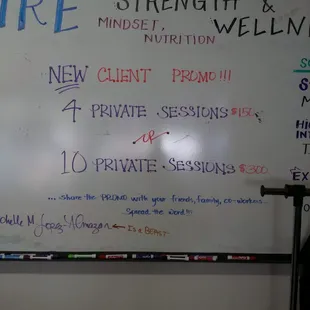 STRENGTH &
WELLN
MINDSET,
NUTRITION
NEW CLIENT PROMO!!!
4 PRIVATE SESSIONS $150
OR
10 PRIVATE SESSIONS $300
...Share the PROMO with your friends, family, co-workers..
Spread the word!!!
chelle M ← Is a BEAST